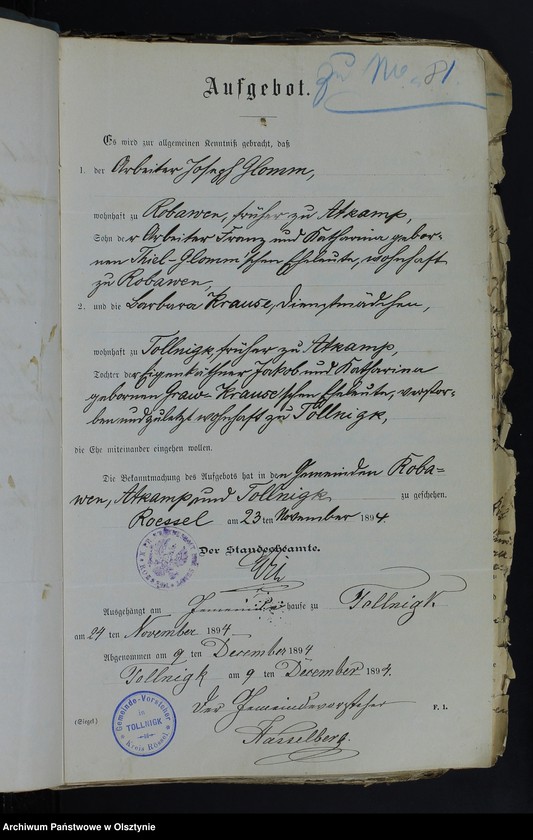 Zu No. 81
Aufgebot.
Es wird zur allgemeinen Kenntniß gebracht, daß
1. der Arbeiter Joseph Glomm,
wohnhaft zu Robawen, früher zu Atkamp,
Sohn der Arbeiter Franz und Katharina gebor-
nen Thiel-Glomm'schen Eheleute, wohnhaft
zu Robawen,
2. und die Barbara Krause, Dienstmädchen,
wohnhaft zu Tollnigk, früher zu Atkamp,
Tochter der Eigenkäthner Jakob und Katharina
gebornen Graw-Krause'schen Eheleute, verstor-
ben und zuletzt wohnhaft zu Tollnigk,
die Ehe miteinander eingehen wollen.
Die Bekanntmachung des Aufgebots hat in den Gemeinden Roba-
wen, Atkamp und Tollnigk zu geschehen.
Roessel am 23 ten November 1894.
Der Standesbeamte.
Ausgehängt am Gemeindehause zu Tollnigk
am 24 ten November 1894
Abgenommen am 9 December 1894
Tollnigk am 9 ten December 1894.
Der Gemeindevorsteher F. 1.
(Siegel.) Gemeinde-Vorsteher in TOLLNIGK Kreis Rössel
Hasselberg.
Archiwum Państwowe w Olsztynie